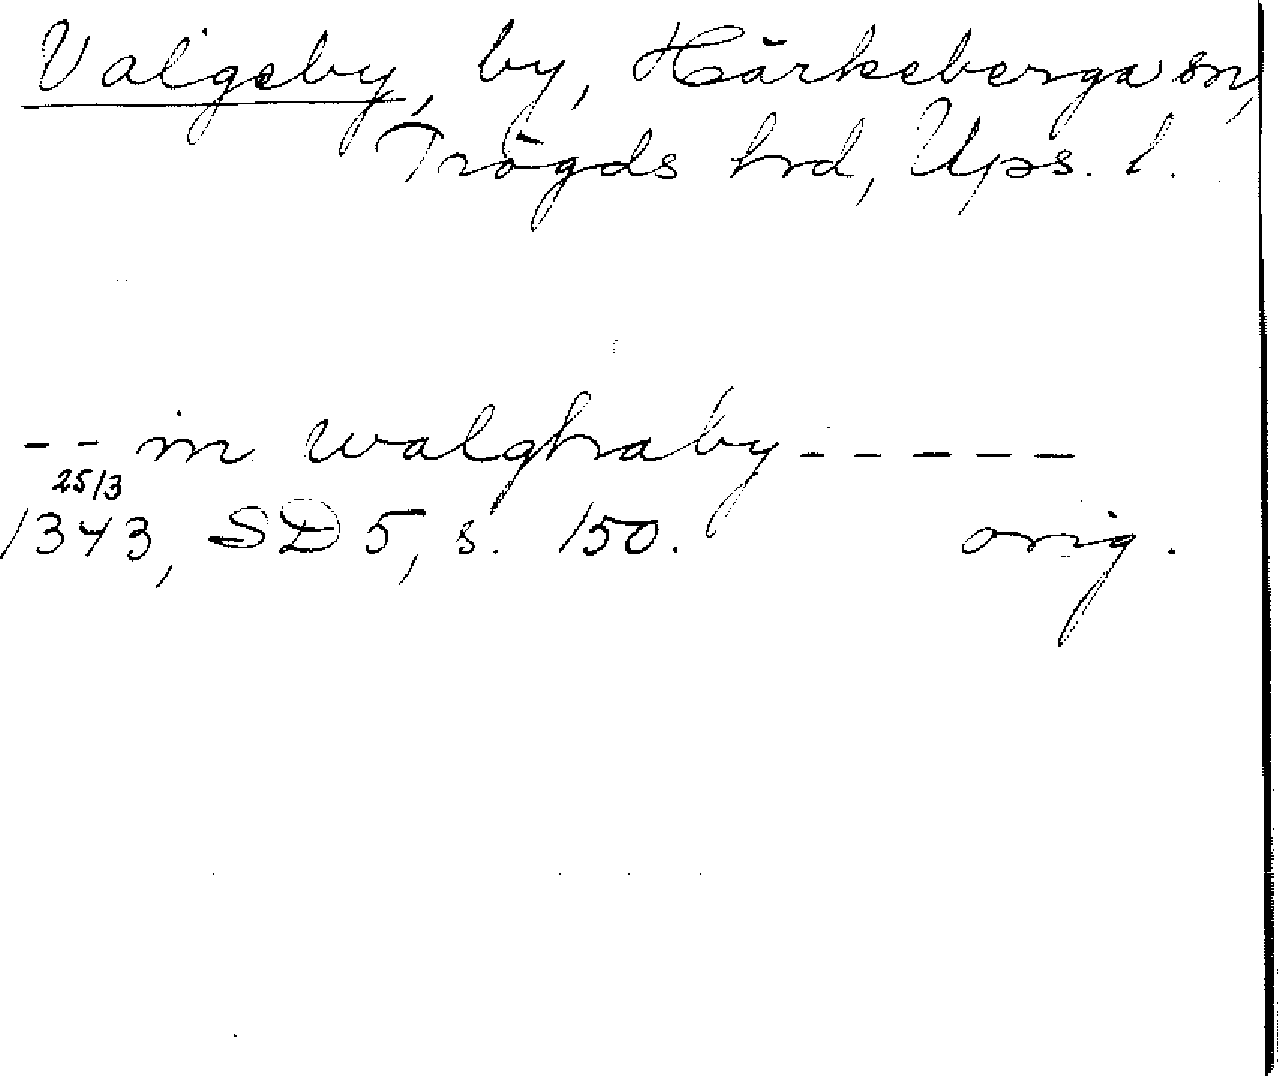 Valgeby, by, Härkeberga sn,
Trögds hrd, Ups. l.
-- in walghaby -----
25/3
1343, SD 5, s. 150. orig.